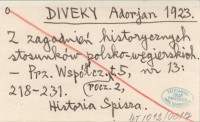 DIVEKY Adorjan 1923.
Z zagadnień historycznych
stosunków polsko-węgierskich.
- Prz. Współcz. t5, nr 13:
218-231. Pocz. 2,
Historia Spisza.